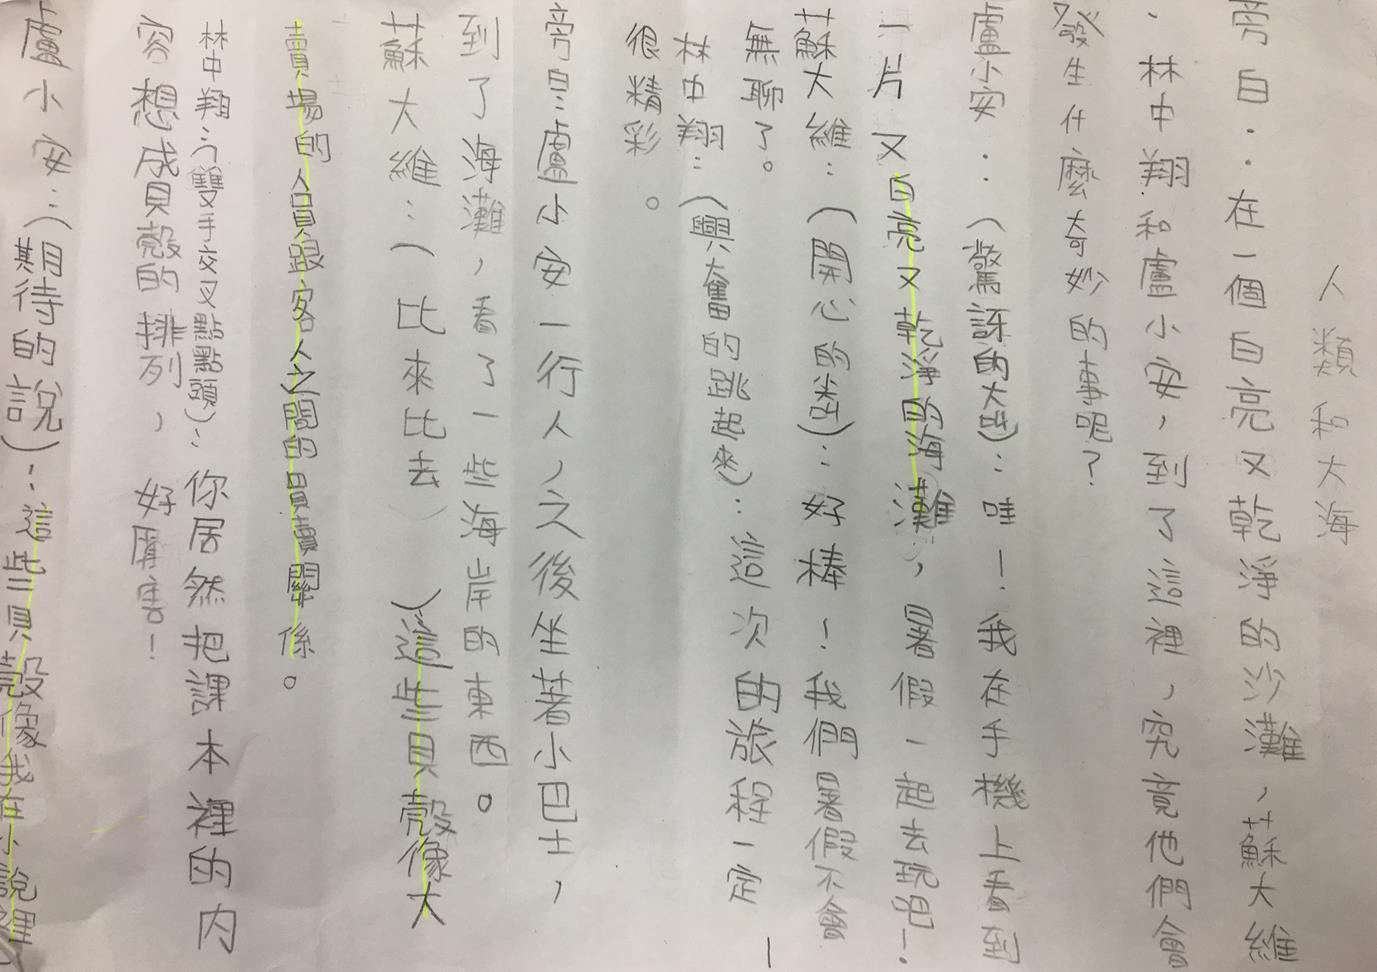 人類和大海
旁白：在一個白亮又乾淨的沙灘，蘇大維
、林中翔和盧小安，到了這裡，究竟他們會
發生什麼奇妙的事呢？
盧小安：（驚訝的大叫）：哇！我在手機上看到
一片又白亮又乾淨的海灘，暑假一起去玩吧！
蘇大維：（開心的叫）：好棒！我們暑假不會
無聊了。
林中翔：（興奮的跳起來）：這次的旅程一定
很精彩。
旁白：盧小安一行人，之後坐著小巴士，
到了海灘，看了一些海岸的東西。
蘇大維：（比來比去）（這些貝殼像大
賣場的人員跟客人之間的買賣關係。
林中翔：（雙手交叉點點頭）：你居然把課本裡的內
容想成貝殼的排列，好厲害！
盧小安：（期待的說）：這些貝殼像我在小說裡